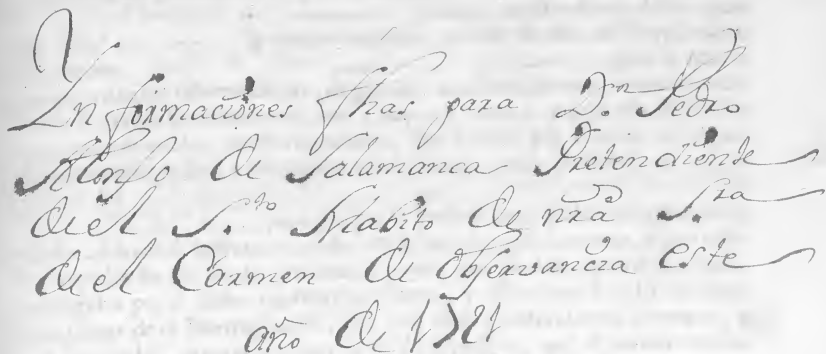 Informaciones fhas para D.n Pedro
Alonso de Salamanca Pretendiente
de el S.to Habito de nra S.ra
de el Carmen de Observancia este
año de 1721